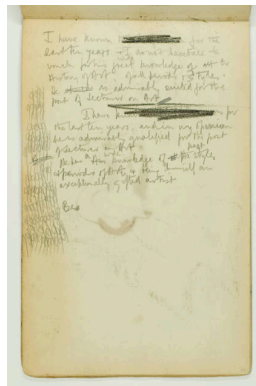 I have known for the
last ten years I do not hesitate to
vouch for his great knowledge of the
History of Art great periods & styles.
He is admirably suited for the
post of Lecturer on Art
I have for
the last ten years, and in my opinion
he is admirably qualified for the post
of Lecturer on Art
He has knowledge of the styles
& periods of Art, & being himself an
exceptionally gifted artist